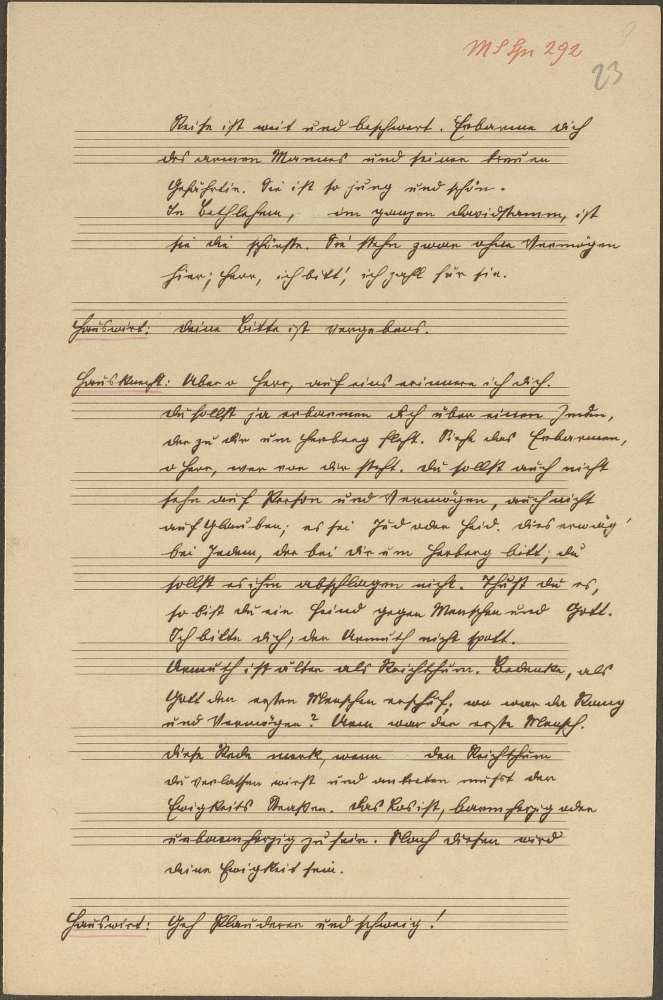 MS Lpr 292
23
Reise ist weit und beschwert. Erbarme dich
des armen Mannes und seiner treuen
Gefährtin. Sie ist so jung und schön.
In Bethlehem, im ganzen Davidstamm, ist
sie die schönste. Sie stehn zwar ohne Vermögen
hier; Herr, ich bitt', ich zahl für sie.
Hauswirt: Deine Bitte ist vergebens.
Hausknecht: Aber o Herr, auf eins erinnere ich dich.
Du sollst ja erbarmen dich über einen Jeden,
der zu dir um Herberg fleht. Siehe das Erbarmen,
o Herr, wer vor dir steht. Du sollst auch nicht
sehn auf Person und Vermögen, auch nicht
auf Glauben; es sei Jud oder Heid. Dies erwäg'
bei Jedem, der bei dir um Herberg bitt; du
sollst es ihm abschlagen nicht. Thust du es,
so bist du ein Feind gegen Menschen und Gott.
Ich bitte dich; der Armuth nicht spott.
Armuth ist älter als Reichthum. Bedenke, als
Gott den ersten Menschen erschuf, wo war da Rang
und Vermögen? Arm war der erste Mensch.
Diese Rede merk, wenn den Reichthum
du verlassen wirst und antreten mußt der
Ewigkeits Straßen. Das Los ist, barmherzig oder
unbarmherzig zu sein. Nach diesen wird
deine Ewigkeit sein.
Hauswirt: Geh Plauderer und schweig!